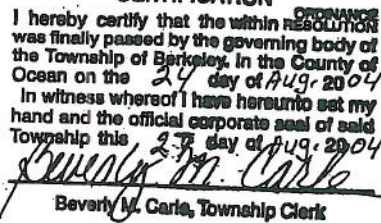 I hereby certify that the within ORDINANCE RESOLUTION
was finally passed by the governing body of
the Township of Berkeley, In the County of
Ocean on the 24 day of Aug. 2004
In witness whereof I have hereunto set my
hand and the official corporate seal of said
Township this day of Aug. 2004
Beverly M. Carle
Beverly M. Carle, Township Clerk